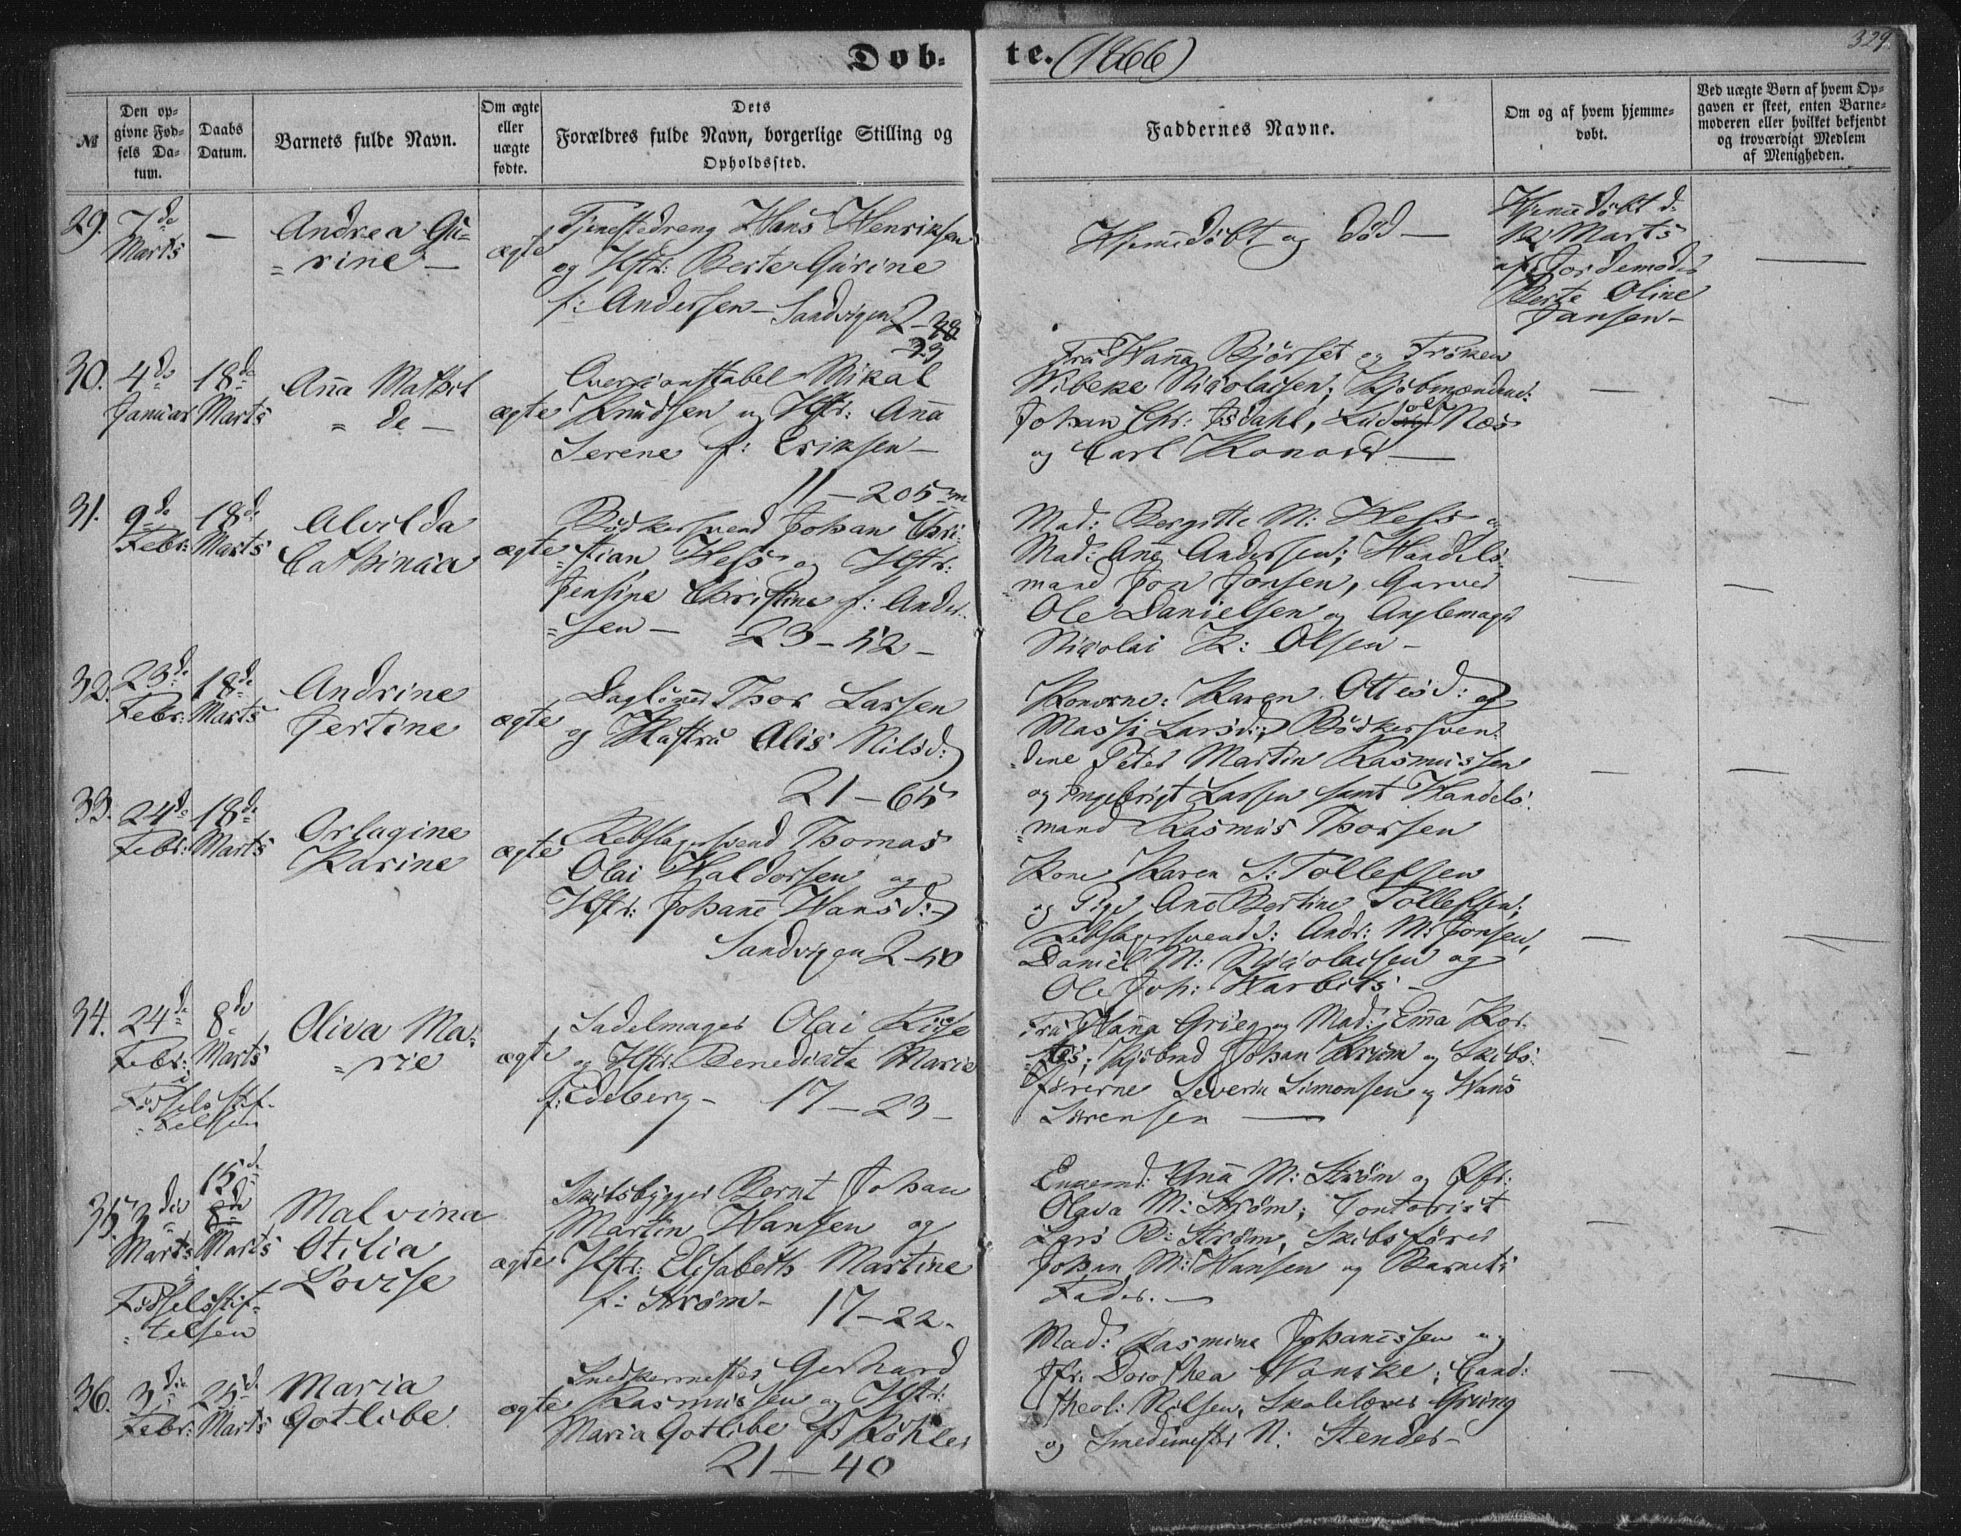 Døb-
te. (1866)
329
№
Den op-
givne Fød-
sels Da-
tum.
Daabs
Datum.
Barnets fulde Navn.
Om ægte
eller
uægte
fødte.
Dets
Forældres fulde Navn, borgerlige Stilling og
Opholdssted.
Faddernes Navne.
Om og af hvem hjemme-
døbt.
Ved uægte Børn af hvem Op-
gaven er skeet, enten Barne-
moderen eller hvilket bekjendt
og troværdigt Medlem
af Menigheden.
29.
7de
Marts
—
Andrea Gu-
"rine —
ægte
Tjenestedreng Hans Henriksen
og Hstr: Berte Gurine
f: Andersen — Sandvigen 2-
23
Hjemedøbt og død —
Hjemedøbt d.
Marts
af Jordemoder
Berte Oline
Jansen —
30.
4de
Januar
18de
Marts
Ana Mathil
"de —
ægte
Overkonstabel Mikal
Knudsen og Hstr: Ana
Serene f: Eriksen —
11 — 205
Fru Hana Bjørset og Frøken
Wibeke Nicolaisen, Kjøbmændene:
Johan Chr: Isdahl, Lud Næs
og Carl Konow —
31.
9de
Febr:
18de
Marts
Alvilda
Cathinca
ægte
Bødkersvend Johan Chri-
"stian Hess og Hstr:
Jensine Christine f: Ander-
"sen — 23 — 52 —
Mad: Bergitte M: Hess og
Mad: Ane Andersen; Handels-
mand Jon Jonsen, Garver
Ole Danielsen og
Nicolai K: Olsen —
32.
23de
Febr:
18de
Marts
Andrine
Jertine
ægte
Dagløner Thor Larsen
og Hustru Alis Nilsd:
21 — 65
Konerne: Karen Ottesd: og
Massi Larsd:; Bødkersven-
"dene Peter Martin Rasmussen
og Ingebrigt Larsen samt Handels-
"mand Rasmus Thorsen
33.
24de
Febr:
18de
Marts
Orlagine
Karine
ægte
Rebslagersvend Thomas
Olai Haldorsen og
Hstr: Johane Hansd:
Sandvigen 2-50
Kone Karen S: Tollefsen
og Pige Ane Bertine Tollefsen;
Rebslagersvend: Andr: M: Jonsen,
Daniel M: Nicolaisen og
Ole Joh: Harbits —
34.
24de
Febr:
i
Fødselsstif-
"telsen
8de
Marts
Oliva Ma-
"rie
ægte
Sadelmager Olai Riise
og Hstr: Benedicte Marie
f: Edeberg — 17 — 23 —
Fru Hana Grieg og Mad: Ema Kor-
Kjøbmd Johan Krüm og Skibs-
førerne Severin Simonsen og Hans
Sørensen —
35.
3die
Marts
i
Fødselsstif-
"telsen
15de
8de
Marts
Malvina
Otilia
Lovise
ægte
Skibsbygger Bernt Johan
Martin Hansen og
Hstr: Elisabeth Martine
f: Strøm — 17 — 22 —
Enkemd: Ana M: Strøm og Jfr:
Olava M: Strøm; Contorist
Lars B: Strøm, Skibsfører
Johan M: Hansen og Barnets
Fader. —
36.
3die
Febr:
25de
Marts
Maria
Gotlibe
ægte
Snedkermester Gerhard
Rasmussen og Hstr:
Maria Gotlibe f: Köhler
21 — 40
Mad: Rasmine Johanessen og
Jfr: Dorothea Wanske; Cand:
theol: Nilsen, Skolelærer Gring
og Smedemester N: Stender —